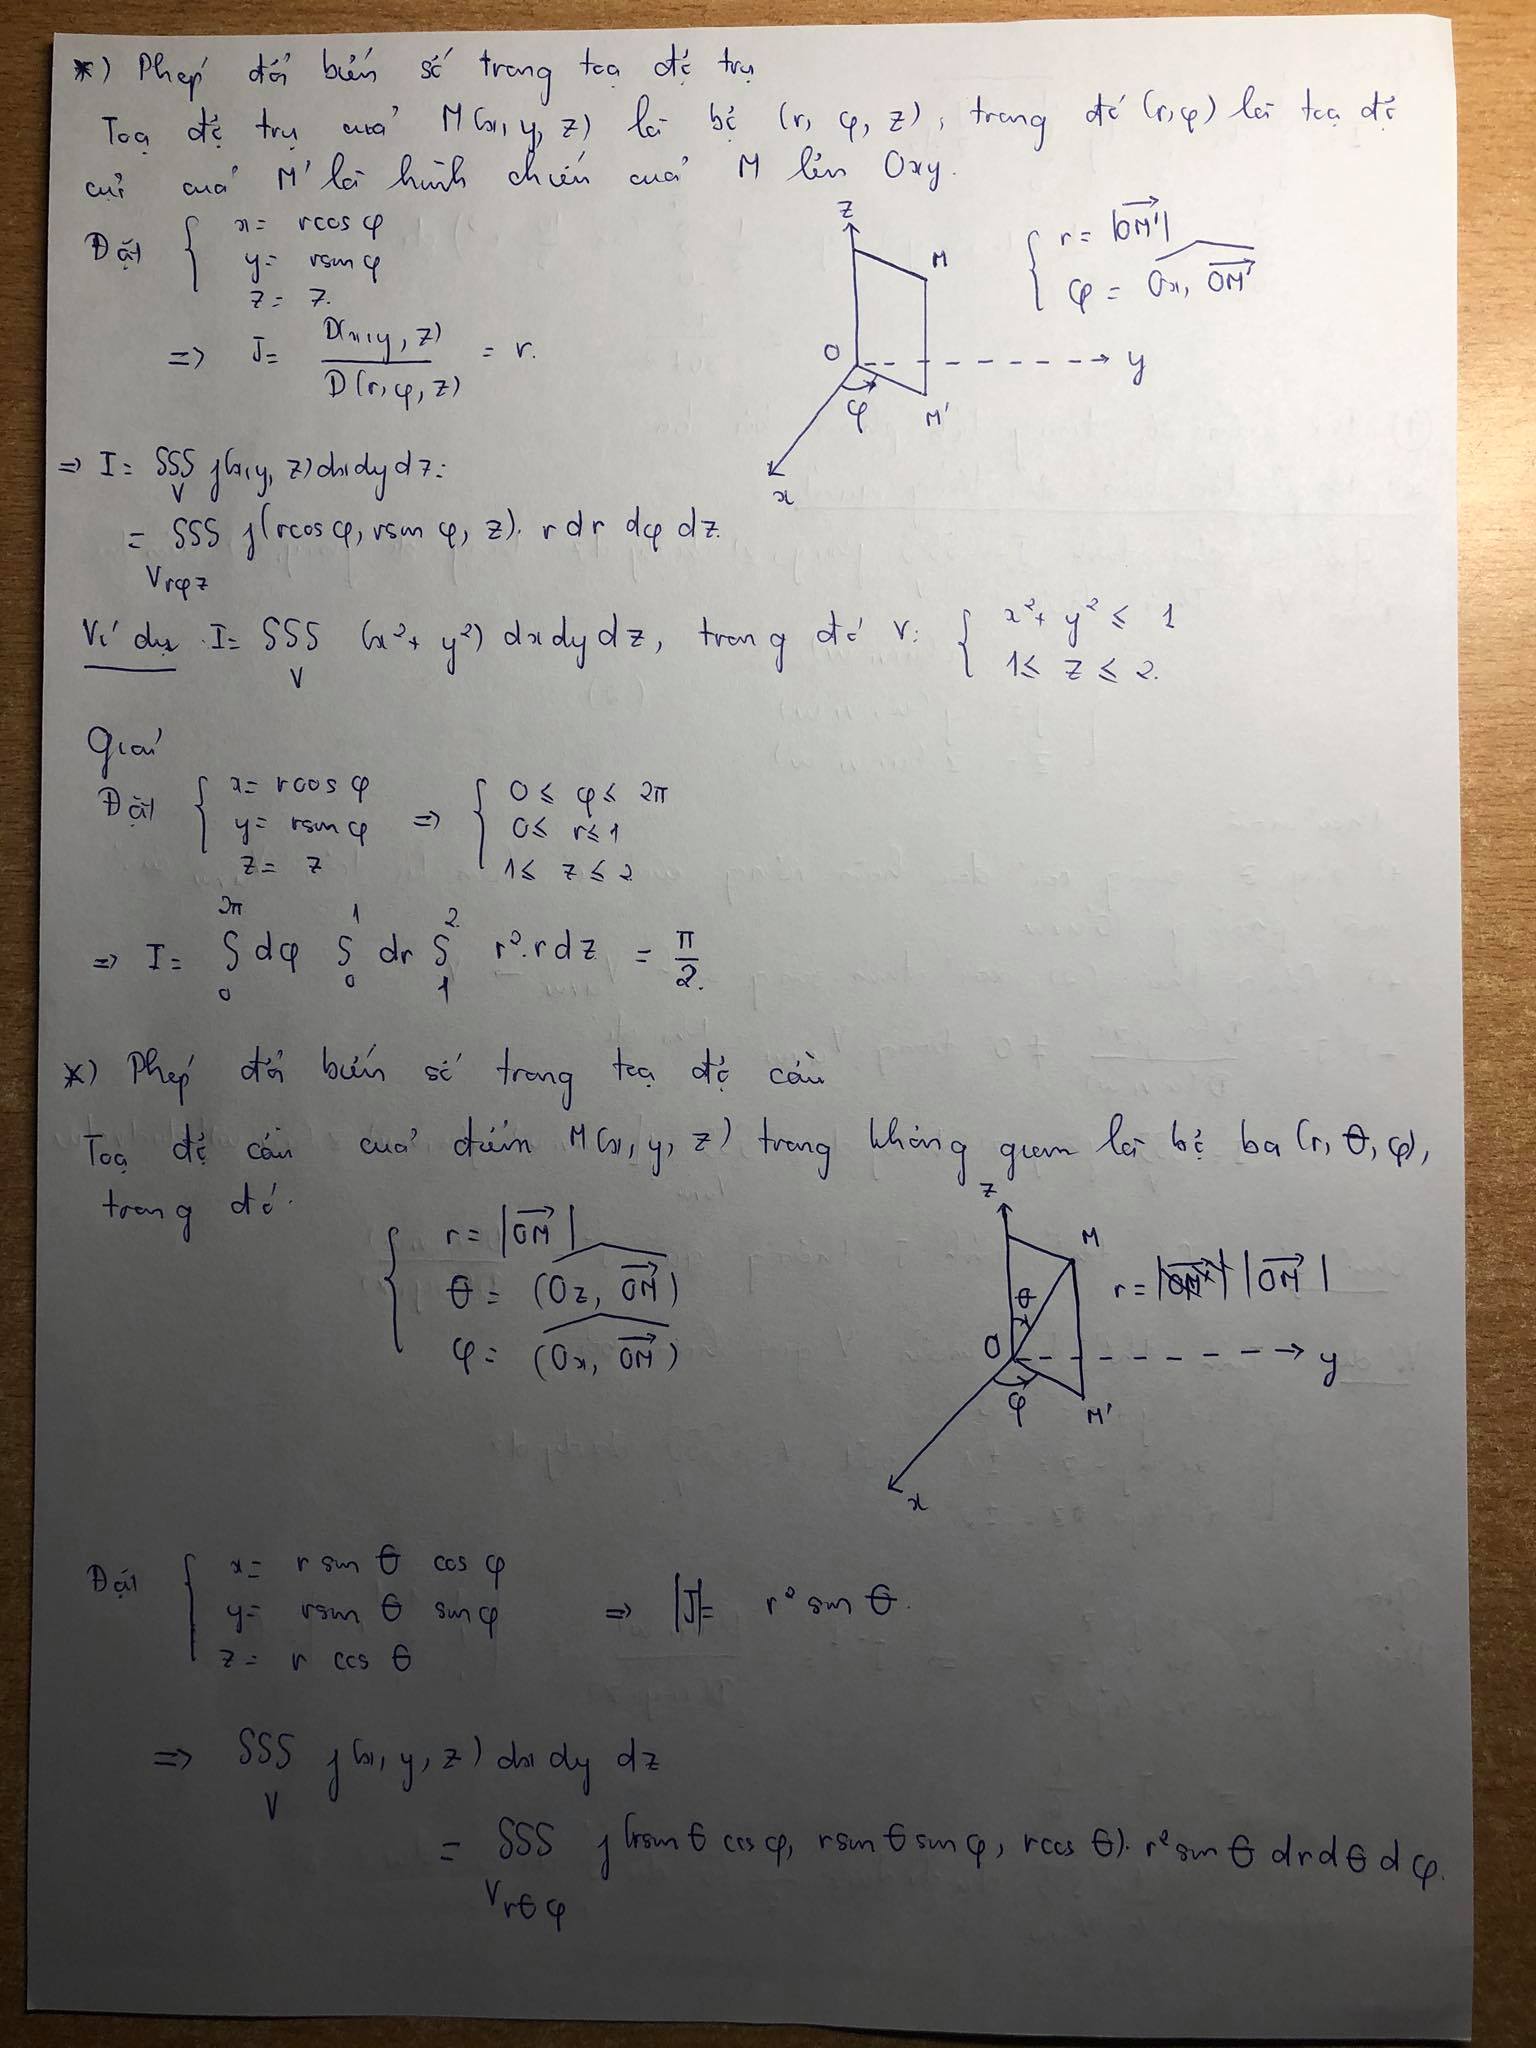 *) Phép đổi biến số trong toạ độ trụ
Toạ độ trụ của M(x, y, z) là bộ (r, φ, z), trong đó (r, φ) là toạ độ
cực của M' là hình chiếu của M lên Oxy.
Đặt { x = rcos φ
y = rsin φ
z = z.
z
M
O
y
φ
M'
x
{ r = |OM'|
φ = Ox, OM'
=> J = D(x, y, z) / D(r, φ, z) = r.
=> I = ∭ f(x, y, z) dx dy dz =
V
= ∭ f(rcos φ, rsin φ, z). r dr dφ dz.
V rφz
Ví dụ. I = ∭ (x² + y²) dx dy dz, trong đó V: { x² + y² ≤ 1
V
1 ≤ z ≤ 2.
Giải
Đặt { x = rcos φ
y = rsin φ
z = z
=> { 0 ≤ φ ≤ 2π
0 ≤ r ≤ 1
1 ≤ z ≤ 2
=> I = ∫₀^2π dφ ∫₀^1 dr ∫₁^2 r². r dz = π/2.
*) Phép đổi biến số trong toạ độ cầu
Toạ độ cầu của điểm M(x, y, z) trong không gian là bộ ba (r, θ, φ),
trong đó.
{ r = |OM|
θ = (Oz, OM)
φ = (Ox, OM)
z
M
θ
O
y
φ
M'
x
r = |OM'| |OM|
Đặt { x = r sin θ cos φ
y = rsin θ sin φ
z = r cos θ
=> |J| = r² sin θ.
=> ∭ f(x, y, z) dx dy dz
V
= ∭ f(rsin θ cos φ, rsin θ sin φ, rcos θ). r² sin θ dr dθ dφ.
V rθφ